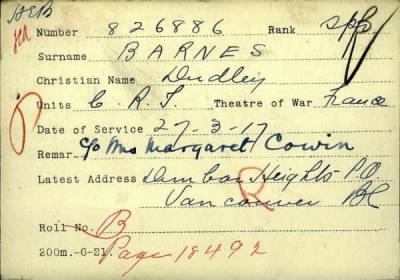 HEB
Number 826886 Rank Spr
Surname BARNES
Christian Name Dudley
Units C.R.T. Theatre of War France
Date of Service 27-3-17
Remar. C/o Mrs Margaret Cowin
Latest Address Dunbar Heights P.O.
Vancouver BC
R
Roll No. B
200m.-6-21. Page 18492